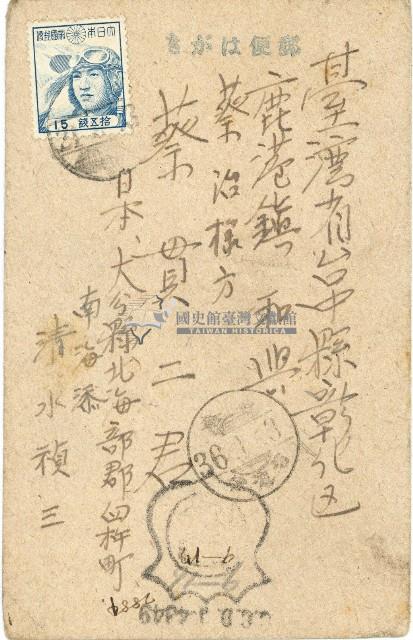 郵便はがき
大日本帝國郵便
15 錢五拾
臺灣省台中縣彰化区
鹿港鎮和興
蔡治樣方
蔡貫二君
日本、大分縣北海部郡臼杵町
南海添
清水禎三
國史館臺灣文獻館
TAIWAN HISTORICA
36.1.3